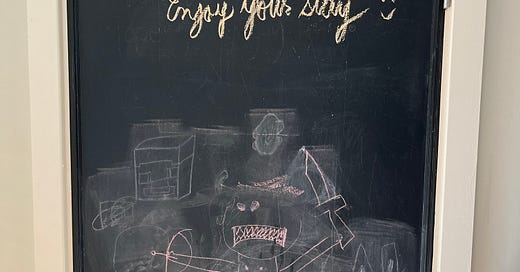 Enjoy your stay